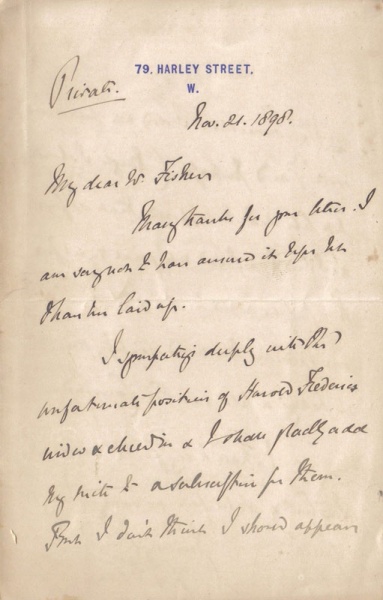 79. HARLEY STREET,
W.
Private.
Nov. 21. 1898.
My dear Mr. Fisher
Many thanks for your letter. I
am sorry not to have answered it before but
I have been laid up.
I sympathise deeply with the
unfortunate position of Harold Frederic's
widow & children & I shall gladly add
my mite to a subscription for them.
But I don't think I should appear